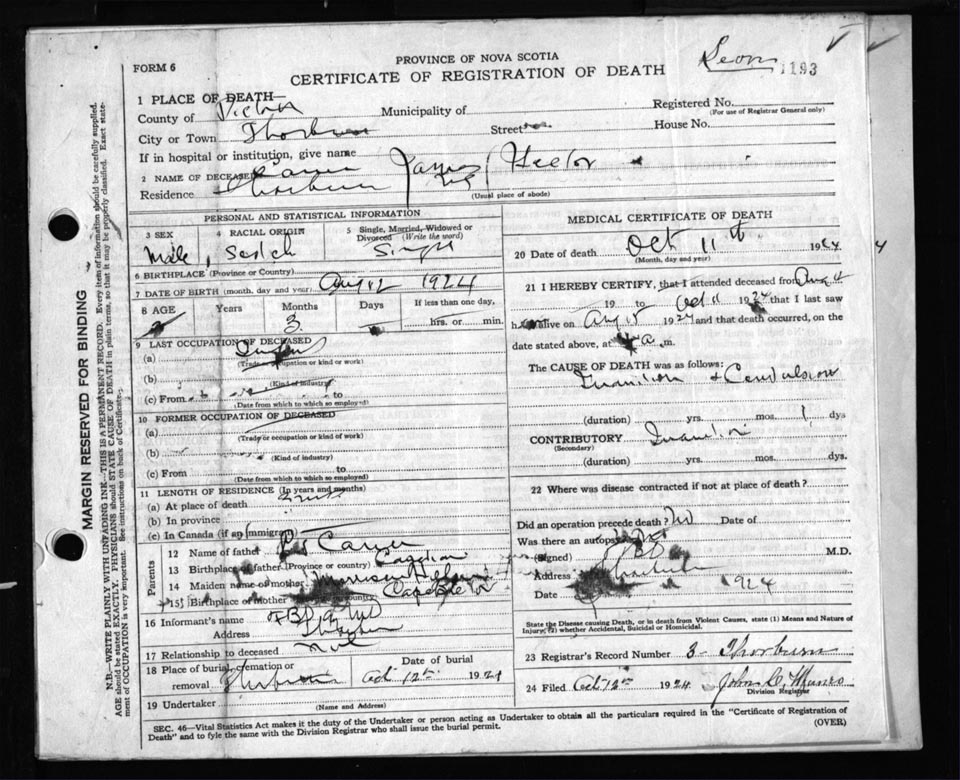 PROVINCE OF NOVA SCOTIA
FORM 6
CERTIFICATE OF REGISTRATION OF DEATH
1193
1 PLACE OF DEATH
County of
Municipality of
Registered No.
(For use of Registrar General only)
City or Town Thorburn
Street
House No.
If in hospital or institution, give name
2 NAME OF DECEASED James Hector
Residence Thorburn
(Usual place of abode)
PERSONAL AND STATISTICAL INFORMATION
3 SEX Male
4 RACIAL ORIGIN Scotch
5 Single, Married, Widowed or Divorced (Write the word) Single
6 BIRTHPLACE (Province or County)
7 DATE OF BIRTH (month, day and year) Aug 12 1924
8 AGE
Years
Months 3
Days
If less than one day,
hrs. or min.
9 LAST OCCUPATION OF DECEASED
(a)
(Trade or occupation or kind of work)
(b)
(Kind of industry)
(c) From to
(Date from which to which so employed)
10 FORMER OCCUPATION OF DECEASED
(a)
(Trade or occupation or kind of work)
(b)
(Kind of industry)
(c) From to
(Date from which to which so employed)
11 LENGTH OF RESIDENCE (In years and months)
(a) At place of death
(b) In province
(c) In Canada (if an immigrant)
Parents
12 Name of father
13 Birthplace of father (Province or country)
14 Maiden name of mother
15 Birthplace of mother country)
16 Informant's name
Address Thorburn
17 Relationship to deceased
18 Place of burial, cremation or removal Thorburn
Date of burial Oct 12th 1924
19 Undertaker
(Name and Address)
MEDICAL CERTIFICATE OF DEATH
20 Date of death Oct 11th 1924
(Month, day and year)
4
21 I HEREBY CERTIFY, that I attended deceased from Aug 4
19 to Oct 11 1924 that I last saw
h alive on Aug 15 1924 and that death occurred, on the
date stated above, at a.m.
The CAUSE OF DEATH was as follows:
Inanition + Convulsion
(duration) yrs. mos. 1 dys
CONTRIBUTORY Inanition
(Secondary)
(duration) yrs. mos. dys.
22 Where was disease contracted if not at place of death?
Did an operation precede death? No Date of
Was there an autopsy
(Signed) M.D.
Address Thorburn
Date 1924
State the Disease causing Death, or in death from Violent Causes, state (1) Means and Nature of
Injury; (2) whether Accidental, Suicidal or Homicidal.
23 Registrar's Record Number 3 - Thorburn
24 Filed Oct 12th 1924 John D. Munro
Division Registrar
SEC. 46—Vital Statistics Act makes it the duty of the Undertaker or person acting as Undertaker to obtain all the particulars required in the "Certificate of Registration of
Death" and to fyle the same with the Division Registrar who shall issue the burial permit.
(OVER)
MARGIN RESERVED FOR BINDING
N.B.—WRITE PLAINLY WITH UNFADING INK—THIS IS A PERMANENT RECORD. Every item of information should be carefully supplied.
AGE should be stated EXACTLY. PHYSICIANS should STATE CAUSE OF DEATH in plain terms, so that it may be properly classified. Exact state-
ment of OCCUPATION is very important. See instructions on back of Certificate.